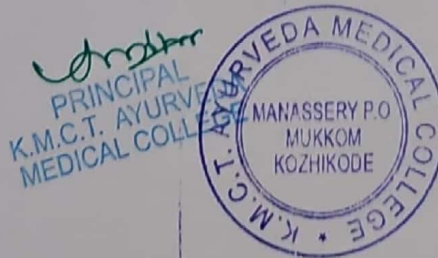 PRINCIPAL
K.M.C.T. AYURVEDA
MEDICAL COLLEGE
K.M.C.T. AYURVEDA MEDICAL COLLEGE
MANASSERY P.O
MUKKOM
KOZHIKODE